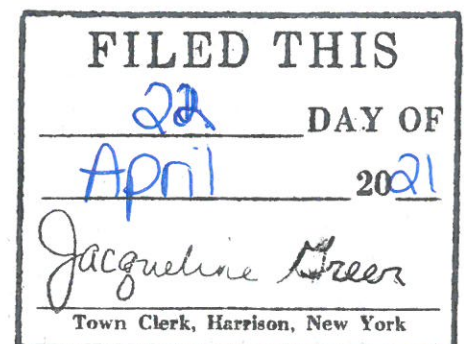 FILED THIS
22 DAY OF
April 2021
Jacqueline Greer
Town Clerk, Harrison, New York